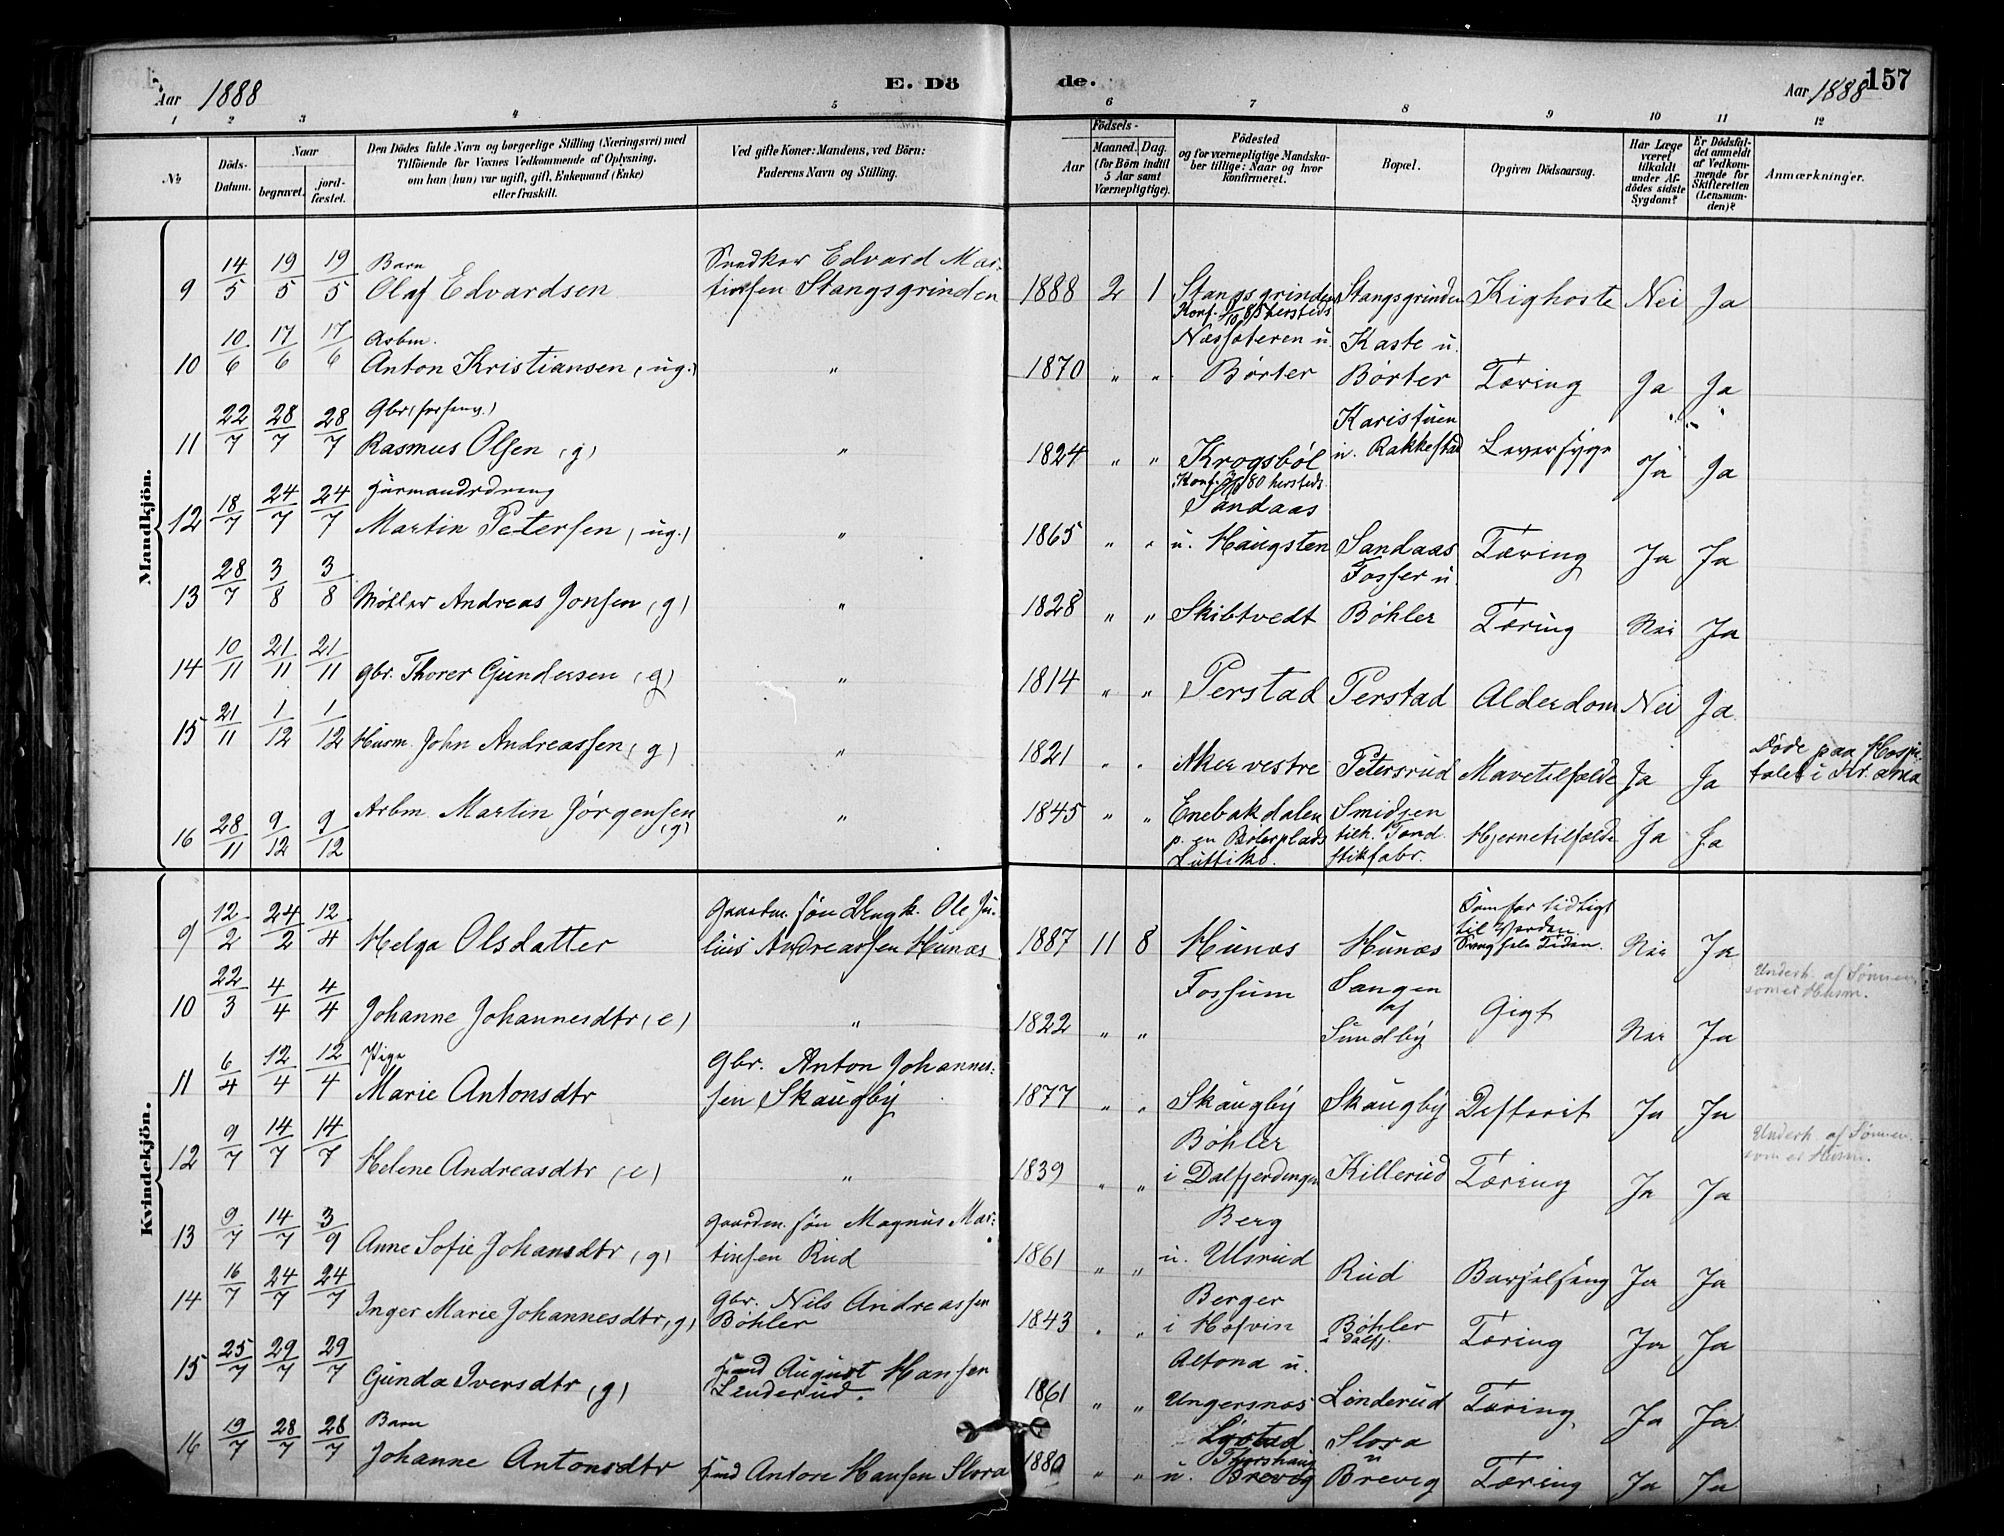 Aar 1888 E. Dö
de. Aar 1888 157
1 2 3 4 5 6 7 8 9 10 11 12
No
Döds-Datum.
Naar
begravet. jord-fæstet.
Den Dödes fulde Navn og borgerlige Stilling (Næringsvei) med
Tilföiende for Voxnes Vedkommende af Oplysning,
om han (hun) var ugift, gift, Enkemand (Enke)
eller fraskilt.
Ved gifte Koner: Mandens, ved Börn:
Faderens Navn og Stilling.
Födsels-
Aar Maaned. Dag.
(for Börn indtil
5 Aar samt
Værnepligtige).
Födested
og for værnepligtige Mandska-
ber tillige: Naar og hvor
konfirmeret.
Bopæl.
Opgiven Dödsaarsag.
Har Læge
været
tilkaldt
under Af-
dödes sidste
Sygdom?
Er Dödsfal-
det anmeldt
af Vedkom-
mende for
Skifteretten
(Lensman-
den)?
Anmærkninger.
Mandkjön.
9 14/5 19/5 19/5 Barn
Olaf Edvardsen
Snedker Edvard Mar-
tinsen Stangsgrinden
1888 2 1 Stangsgrinden Stangsgrinden Kighoste Nei Ja
10 10/6 17/6 17/6 Arbm.
Anton Kristiansen (ug.) "
1870 " "
Næssæteren u.
Börter
Kaste u.
Börter
Tæring Ja Ja
11 22/7 28/7 28/7
Rasmus Olsen (g) "
1824 " " Krogsböl
Karistuen
u. Rakkestad
Leversyge Ja Ja
12 18/7 24/7 24/7 Husmandsdreng
Martin Petersen (ug.) "
1865 " "
Sandaas
u. Haugsten Sandaas Tæring Ja Ja
13 28/7 3/8 3/8 Möller Andreas Jonsen (g) "
1828 " " Skibtvedt
Fosser u.
Böhler Tæring Nei Ja
14 10/11 21/11 21/11 Gbr. Thorer Gundersen (g) "
1814 " " Perstad Perstad Alderdom Nei Ja
15 21/11 1/12 1/12 Husm. John Andreassen (g) "
1821 " " Aker vestre Petersrud Mavetilfælde Ja Ja
Døde paa Hospi-
talet i Kr.ania
16 28/11 9/12 9/12 Arbm Martin Jörgensen (g) "
1845 " " Enebakdalen
p. en Böler plads
Smidjen
tilh. Tænd
stikfabr.
Hjernetilfælde Ja Ja
Kvindekjön.
9 12/2 24/2 12/4 Helga Olsdatter
Gaardm. søn Ole Ju-
lius Andreassen Hunæs
1887 11 8 Hunæs Hunæs
Som for tidligt
til Verden.
Svag hele Tiden.
Nei Ja
10 22/3 4/4 4/4 Johanne Johannesdtr (e) "
1822 " " Fossum
Sangen
af
Sundby
Gigt Nei Ja
Underh. af Sønnen,
som er Husm.
11 6/4 12/4 12/4 Pige
Marie Antonsdtr
Gbr. Anton Johannes-
sen Skaugby
1877 " " Skaugby Skaugby Defterit Ja Ja
12 9/7 14/7 14/7 Helene Andreasdtr (e) "
1839 " " Böhler
i Dalfjerdingen Killerud Tæring Ja Ja
Underh. af Sønnen
som er Husm.
13 9/7 14/7 3/9 Anne Sofie Johansdtr (g)
Gaardm. søn Magnus Mar-
tinsen Rud
1861 " " Berg
u. Ulsrud Rud Barselseng Ja Ja
14 16/7 24/7 24/7 Inger Marie Johannesdtr (g)
Gbr. Nils Andreassen
Böhler
1843 " " Berger
i Hofvin
Böhler
i Dalfj.
Tæring Ja Ja
15 25/7 29/7 29/7 Gunda Iversdtr (g)
August Hansen
Lenderud.
1861 " " Altona u.
Ungersnæs Lenderud Tæring Ja Ja
16 19/7 28/7 28/7 Barn
Johanne Antonsdtr
Antore Hansen Slora
1880 " "
u. Brevig
Slora
u
Brevig
Tæring Ja Ja